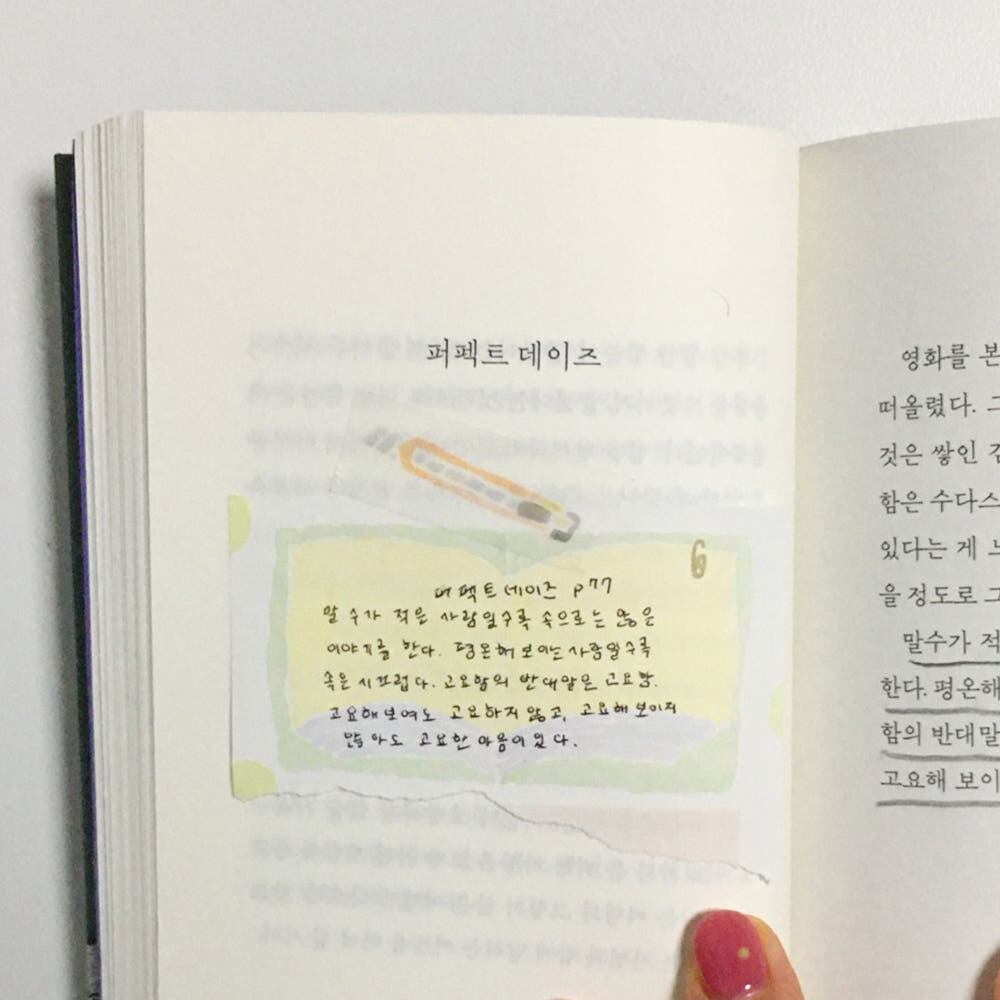 퍼펙트 데이즈
6
퍼펙트 데이즈 p77
말 수가 적은 사람일수록 속으로는 많은
이야기를 한다. 평온해 보이는 사람일수록
속은 시끄럽다. 고요함의 반대말은 고요함.
고요해 보여도 고요하지 않고, 고요해 보이지
않아도 고요한 마음이 있다.
영화를 본
떠올렸다. 그
것은 쌓인
함은 수다스
있다는 게
을 정도로 그
말수가 적
한다. 평온해
함의 반대말
고요해 보이